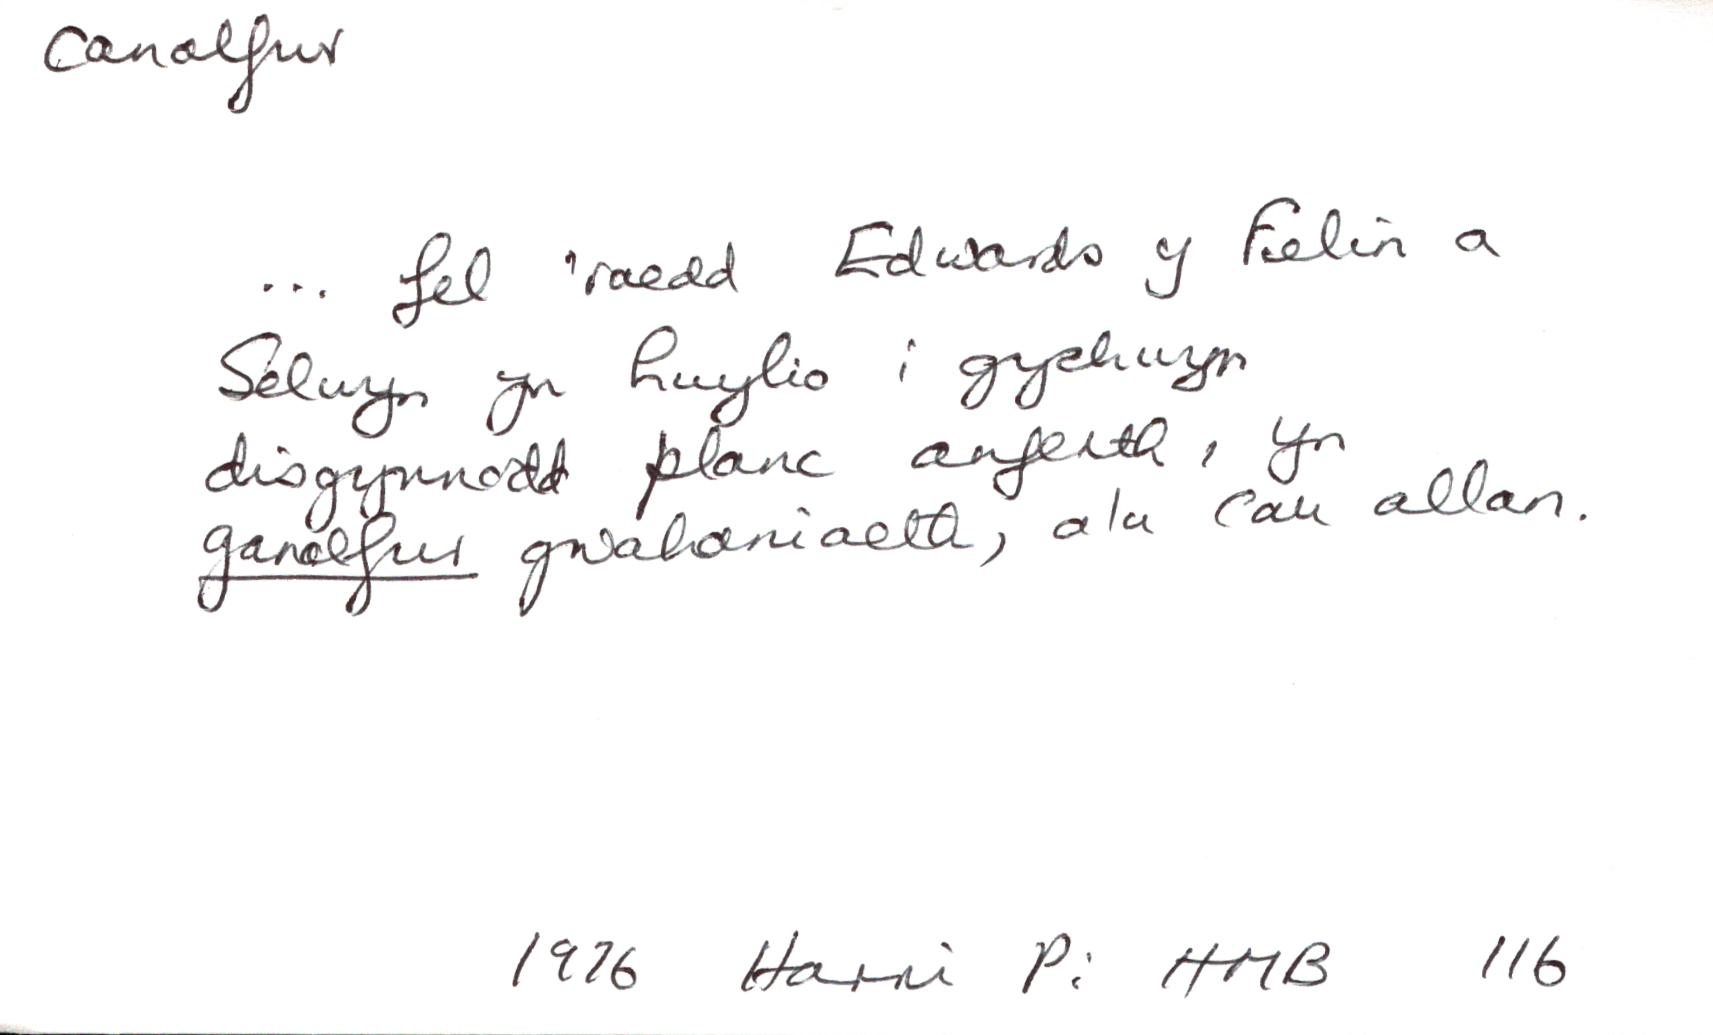 canolfur
... fel 'raedd Edwards y Felin a
Selwyn yn hwylio i gychwyn
disgynnodd planc anferth, yn
ganolfur gwahaniaeth, a'u cau allan.
1976 Harri P: HMB 116